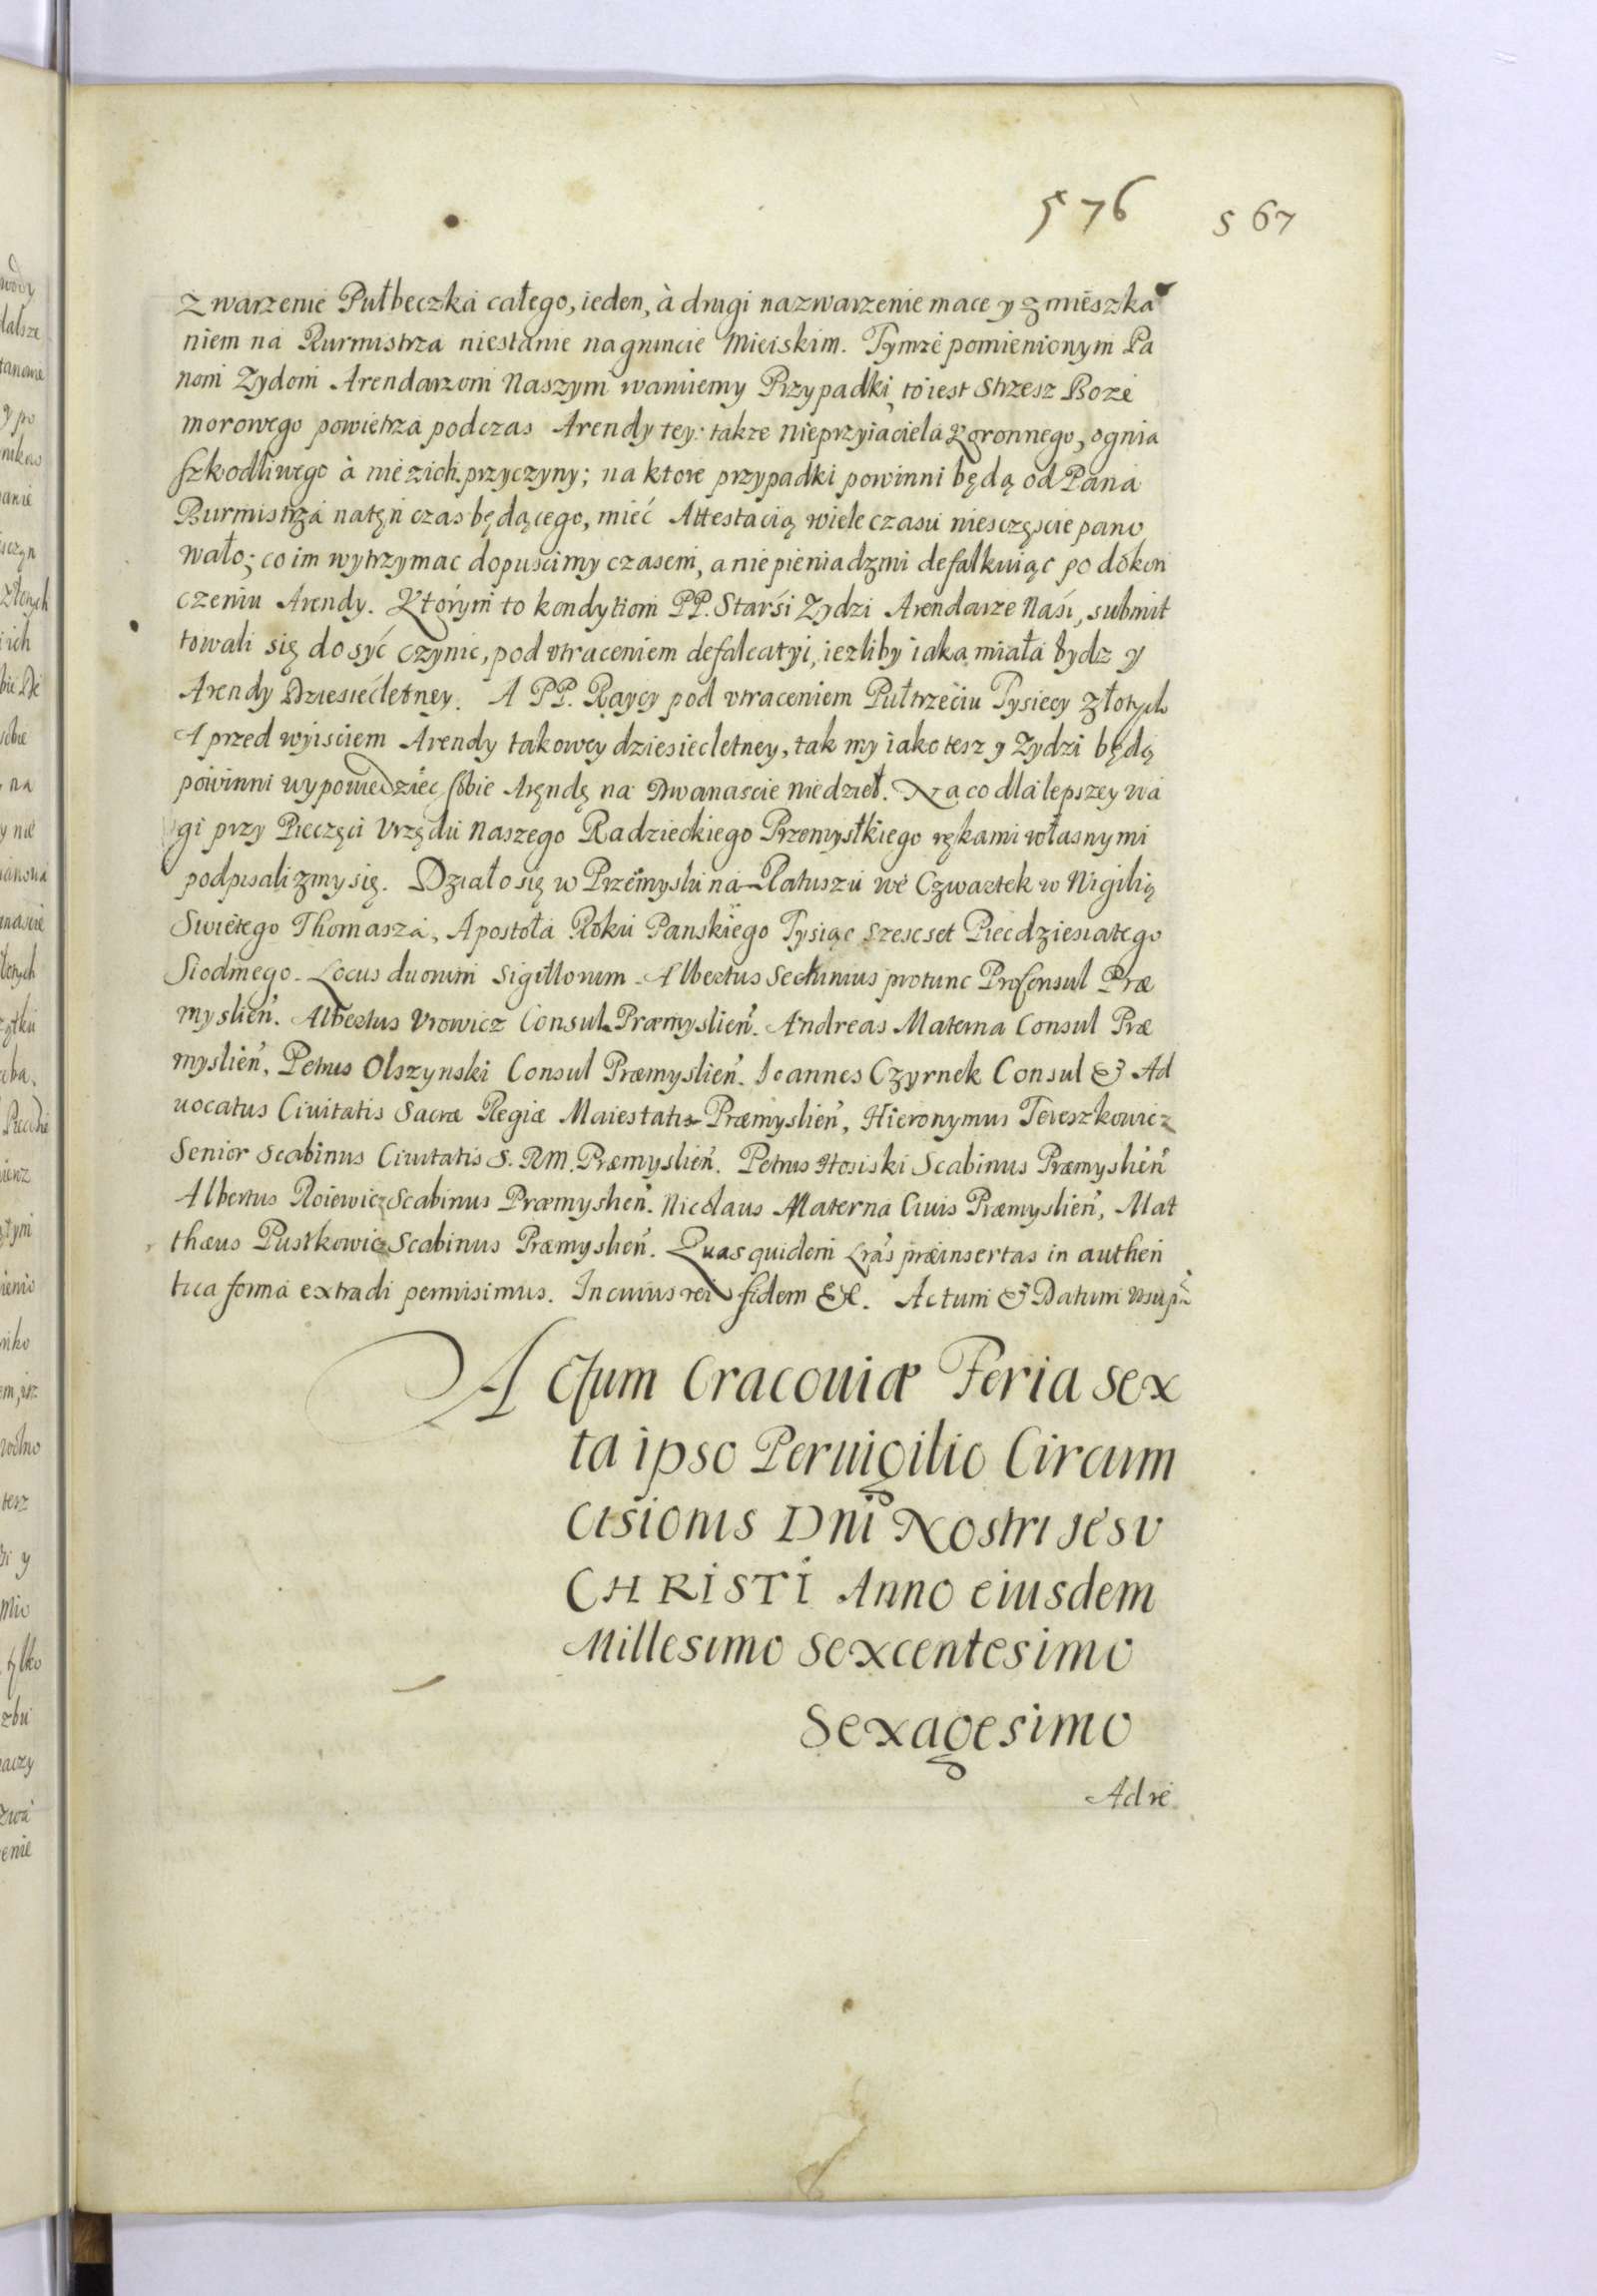 576 567
zwarzenie Pułbeczka całego, ieden, à drugi nazwarzenie mace y zmieszka
niem na Burmistrza niestanie nagruncie Mieiskim. Tymze pomienionym Pa
nom Zydom Arendarzom Naszym waruiemy Przypadki, to iest Strzesz Boze
morowego powietrza podczas Arendy tey: takze Nieprzyiaciela Koronnego, ognia
szkodliwego à nie zich przyczyny; na ktore przypadki powinni będą od Pana
Burmistrza natęn czas będącego, mieć Attestacią wiele czasu niesczęscie pano
wało; co im wytrzymac dopuscimy czasem, a nie pieniadzmi defalkuiąc po dokon
czeniu Arendy. Którym to kondytiom PP. Starśi Zydzi Arendarze Naśi, submit
towali się dosyć czynic, pod vtraceniem defalcatyi, iezliby iaka miała bydz y
Arendy Dziesiećletney. A PP. Raycy pod vtraceniem Pułtrzeciu Tysiecy złotych
A przed wyisciem Arendy takowey dziesiecletney, tak my iako tesz y Zydzi będą
powinni wypowiedziec sobie Aręndę na Dwanascie niedzieł. Na co dla lepszey wa
gi przy Pieczęci Vrzędu Naszego Radzieckiego Przemysłkiego rękami własnymi
podpisalizmy się. Działo się w Przemyslu na Ratuszu we Czwartek w Wigilią
Swietego Thomasza, Apostoła Roku Panskiego Tysiąc szescset Piecdziesiatego
Siodmego. Locus duorum Sigillorum. Albertus Sechinius protunc Proconsul Præ
myslień. Albertus Vrowicz Consul Præmyslień. Andreas Materna Consul Præ
myslień, Petrus Olszynski Consul Præmyslień. Ioannes Czyrnek Consul & Ad
uocatus Ciuitatis Sacræ Regiæ Maiestatis Præmyslień, Hieronymus Tereszkowicz
Senior Scabinus Ciuitatis S. RM. Præmyslień. Petrus Hosiski Scabinus Præmyslień
Albertus Roiewicz Scabinus Præmyslień. Nicolaus Materna Ciuis Præmyslień, Mat
thæus Pustkowicz Scabinus Præmyslień. Quas quidem Lrãs præinsertas in authen
tica forma extradi permisimus. In cuius rei fidem &c. Actum & Datum vtsupra
Actum Cracouiæ Feria sex
ta ipso Peruigilio Circum
cisionis Dni Nostri Jesv
CHRISTI Anno eiusdem
Millesimo Sexcentesimo
Sexagesimo
Ad re